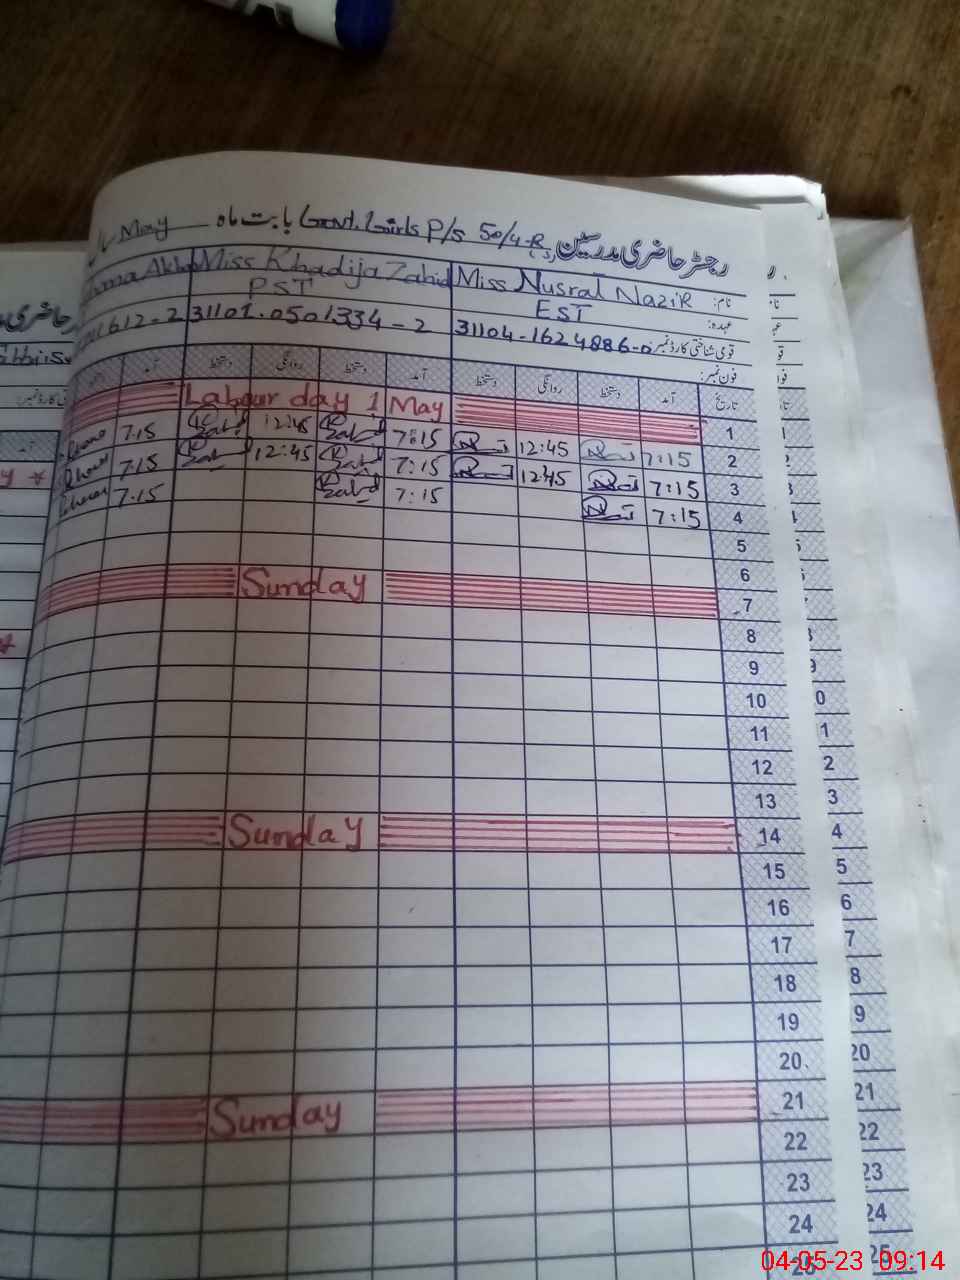 رجسٹر حاضری مدرسین Govt. Girls P/s 50/4-R بابت ماہ May
نام: Miss Nusrat Nazir Miss Khadija Zahid
عہدہ: EST PST
قومی شناختی کارڈ نمبر 31104-1624886-0 31101-0501334-2 612-2
فون نمبر:
تاریخ آمد دستخط روانگی دستخط آمد دستخط روانگی دستخط آمد
1 Labour day 1 May
2 7:15 12:45 7:15 12:45 7.15
3 7:15 12:45 7:15 12:45 7.15
4 7:15 7:15 7.15
5
6
7 Sunday
8
9
10
11
12
13
14 Sunday
15
16
17
18
19
20
21 Sunday
22
23
24
25
04-05-23 09:14